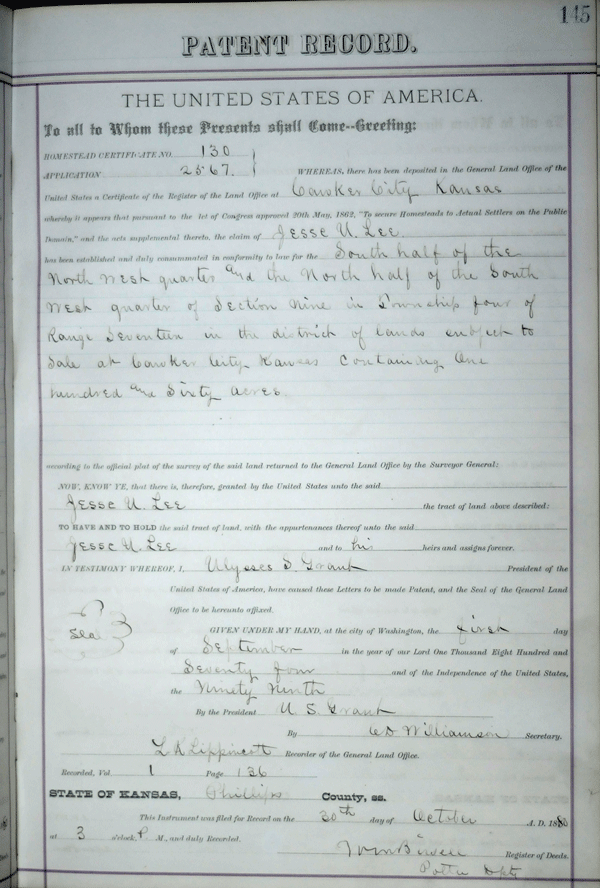 145
PATENT RECORD.
THE UNITED STATES OF AMERICA.
To all to Whom these Presents shall Come--Greeting:
HOMESTEAD CERTIFICATE NO. 130
APPLICATION 2567. WHEREAS, there has been deposited in the General Land Office of the
United States a Certificate of the Register of the Land Office at Cawker City Kansas
whereby it appears that pursuant to the Act of Congress approved 20th May, 1862, "To secure Homesteads to Actual Settlers on the Public
Domain," and the acts supplemental thereto, the claim of Jesse U. Lee.
has been established and duly consummated in conformity to law for the South half of the
North West quarter and the North half of the South
West quarter of Section Nine in Township four of
Range Seventeen in the district of lands subject to
Sale at Cawker City Kansas Containing One
hundred and Sixty acres.
according to the official plat of the survey of the said land returned to the General Land Office by the Surveyor General:
NOW, KNOW YE, that there is, therefore, granted by the United States unto the said
Jesse U. Lee the tract of land above described:
TO HAVE AND TO HOLD the said tract of land, with the appurtenances thereof unto the said
Jesse U. Lee and to his heirs and assigns forever.
IN TESTIMONY WHEREOF, I, Ulysses S. Grant President of the
United States of America, have caused these Letters to be made Patent, and the Seal of the General Land
Office to be hereunto affixed.
Seal
GIVEN UNDER MY HAND, at the city of Washington, the first day
of September in the year of our Lord One Thousand Eight Hundred and
Seventy four and of the Independence of the United States,
the Ninety Ninth
By the President U. S. Grant
By Williamson Secretary.
Lippincott Recorder of the General Land Office.
Recorded, Vol. 1 Page 136
STATE OF KANSAS, Phillips County, ss.
This Instrument was filed for Record on the 30th day of October A. D. 1880
at 3 o'clock, P. M., and duly Recorded.
Register of Deeds.